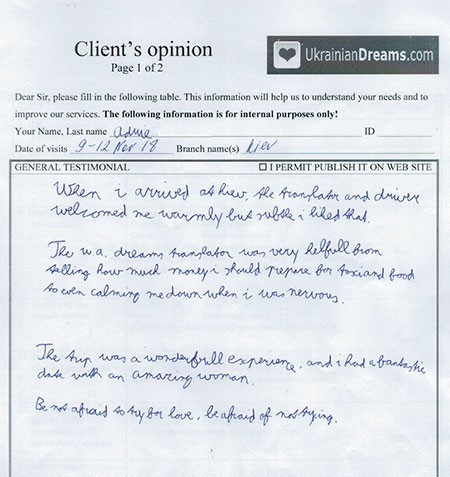 Client's opinion
Page 1 of 2
UkrainianDreams.com
Dear Sir, please fill in the following table. This information will help us to understand your needs and to
improve our services. The following information is for internal purposes only!
Your Name, Last name ID
Date of visits 9-12 Nov 18 Branch name(s) Kiev
GENERAL TESTIMONIAL ☐ I PERMIT PUBLISH IT ON WEB SITE
When i arrived at kiew, the translator and driver
welcomed me warmly but subtle i liked that.
The u.a. dreams translator was very helfull from
telling how much money i should prepare for taxi and food
to even calming me down when i was nervous.
The trip was a wonderfull experience, and i had a fantastic
date with an amazing woman.
Be not afraid to try for love, be afraid of not trying.